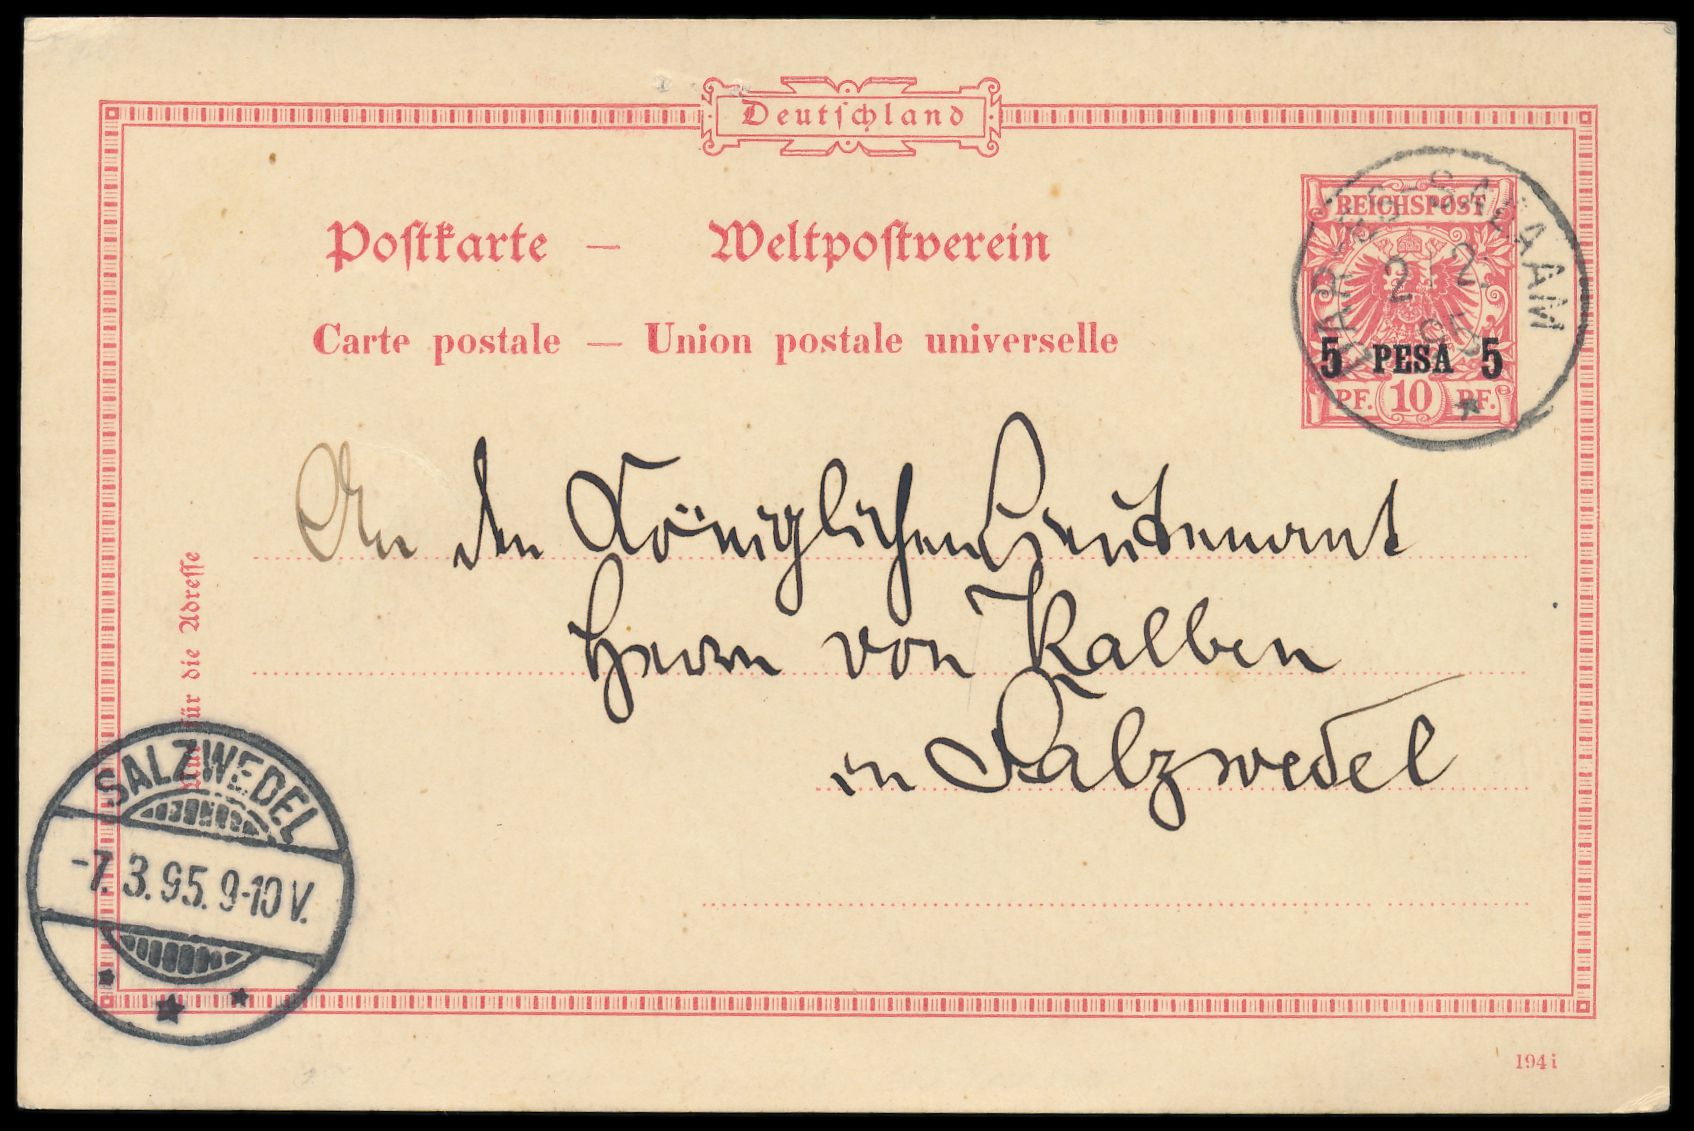 Deutschland
Postkarte — Weltpostverein
Carte postale — Union postale universelle
REICHSPOST
DAR-ES-SALAAM
2 2
95
5 PESA 5
PF. 10 PF.
An den Königlichen Lieutenant
Herrn von Kalben
in Salzwedel
Nur für die Adresse
SALZWEDEL
-7.3.95.9-10V.
194i